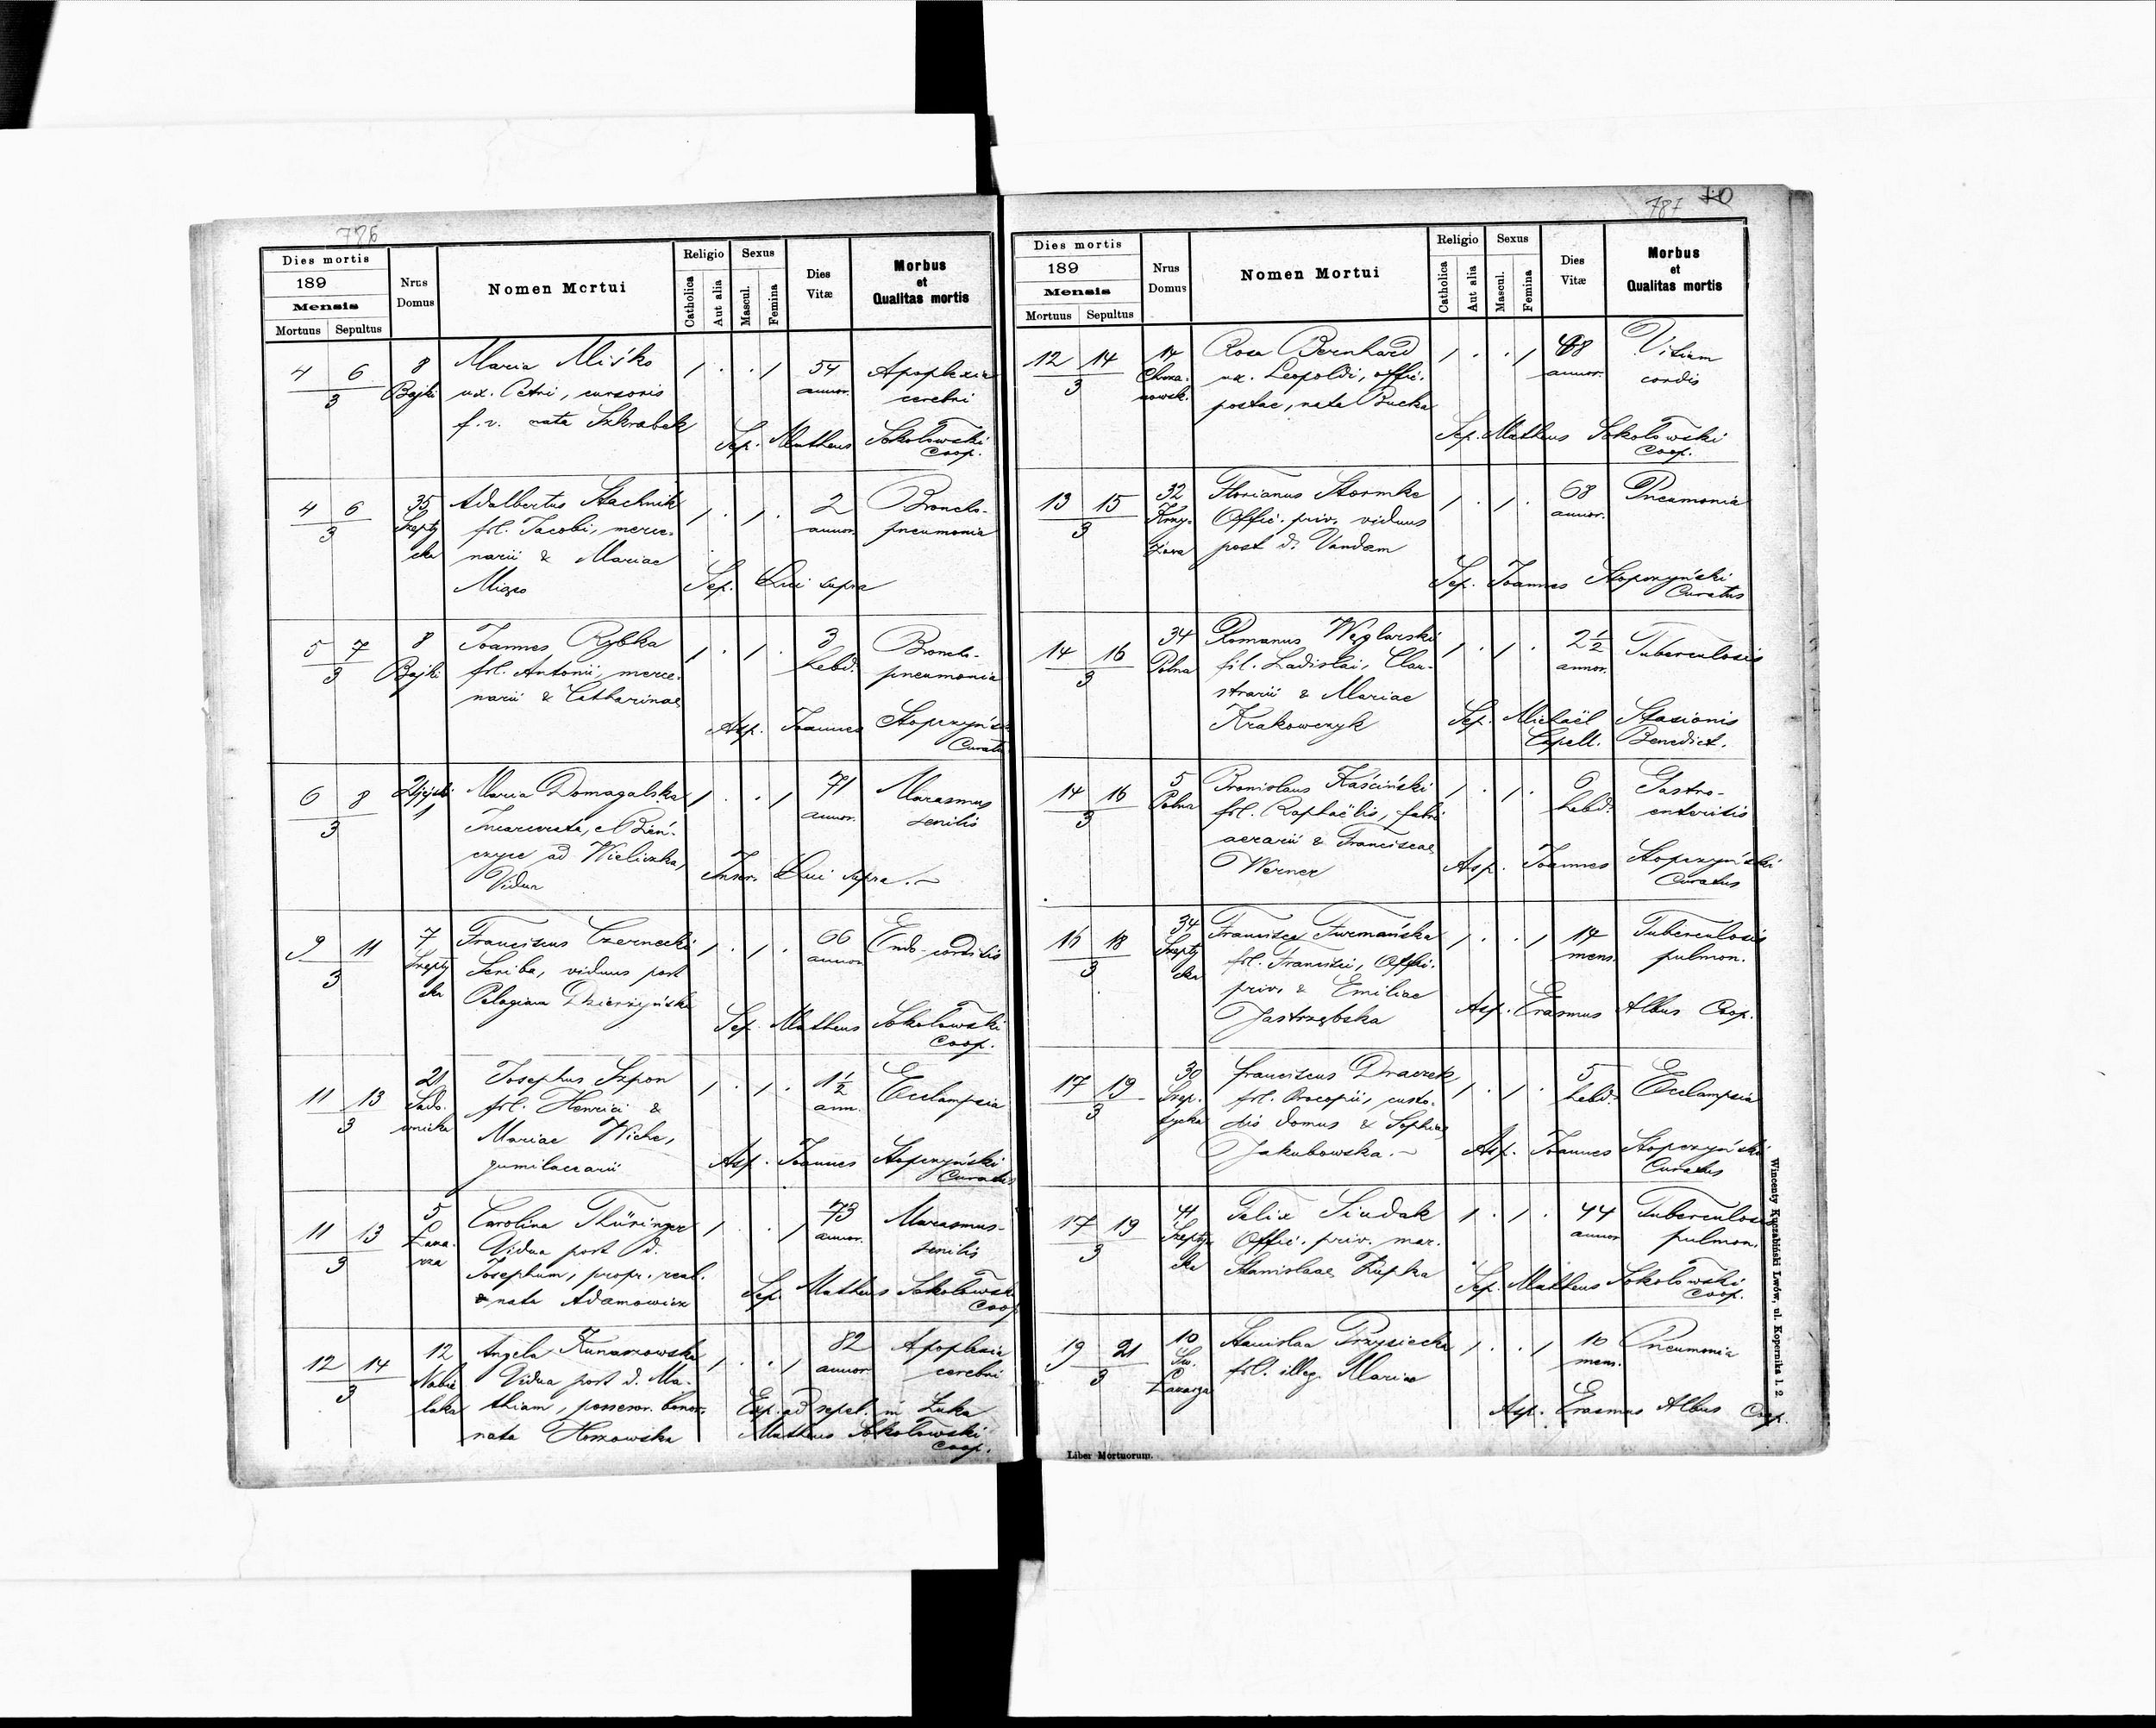 786
Dies mortis
189
Mensis
Mortuus Sepultus
Nrus Domus
Nomen Mortui
Religio
Catholica
Aut alia
Sexus
Mascul.
Femina
Dies Vitæ
Morbus et Qualitas mortis
4 6 8 Maria Miśko 1 . . 1 54 Apoplexia
3 Bajki ux. Petri, cursoris annor. cerebri
f. v. nata Szkrabek
Sep. Matheus Sokołowski
Coop.
4 6 35 Adalbertus Stachnik 1 . 1 . 2 Broncho-
3 Szepty fil. Jacobi, merce- annor. pneumonia
cka narii & Mariae
Sep. Qui supra
5 7 8 Joannes Rybka 1 . 1 . 3 Broncho-
3 Bajki fil. Antonii, merce- hebd. pneumonia
narii & Catharinae
Asp. Joannes Stopczyński
Curatus
6 8 1 Maria Domagalska 1 . . 1 71 Marasmus
3 annor. senilis
ad Wieliczka,
Vidua
Qui supra.
9 11 7 Franciscus Czernecki 1 . 1 . 66 Endo-carditis
3 Szepty Scriba, viduus post annor.
cka Pelagiam Dzierżyńska
Sep. Matheus Sokołowski
Coop.
11 13 21 Josephus Szpon 1 . 1 . 1½ Ecclampsia
3 Sado- fil. Henrici & ann.
wnicka Mariae Wiche,
Asp. Joannes Stopczyński
Curatus
11 13 5 Carolina Thüringer 1 . . 1 73 Marasmus
3 Łaza- Vidua post d. annor. senilis
rza Josephum, propr. real.
& nata Adamowicz
Sep. Matheus Sokołowski
Coop.
12 14 12 Angela Kunaszowska 1 . . 1 82 Apoplexia
3 Nabie Vidua post d. Ma- annor. cerebri
laka thiam, possessor. bonor.
Exp. ad sepel. in Łuka
nata Matheus Sokołowski
Coop.
787 70
Dies mortis
189
Mensis
Mortuus Sepultus
Nrus Domus
Nomen Mortui
Religio
Catholica
Aut alia
Sexus
Mascul.
Femina
Dies Vitæ
Morbus et Qualitas mortis
12 14 14 Rosa Bernhard 1 . . 1 68 Vitium
3 Chrza- ux. Leopoldi, offic. annor. cordis
nowsk. postae, nata Bucka
Sep. Matheus Sokołowski
Coop.
13 15 32 Florianus Stormke 1 . 1 . 68 Pneumonia
3 Krzy- Offic. priv. viduus annor.
żowa post d. Vandam
Sep. Joannes Stopczyński
Curatus
14 16 34 Romanus Węglarski 1 . 1 . 2½ Tuberculosis
3 Polna fil. Ladislai, Clau- annor.
strarii & Mariae
Krakowczyk Sep. Michaël Stasionis
Capell. Benedict.
14 16 5 Bronislaus Kaściński 1 . 1 . 6 Gastro-
3 Polna fil. Raphaëlis, fabri hebd. enteritis
aerarii & Franciscae
Werner Asp. Joannes Stopczyński
Curatus
16 18 34 Francisca Furmańska 1 . . 1 14 Tuberculosis
3 Szepty fil. Francisci, Offic. mens. pulmon.
cka priv. & Emiliae
Jastrzębska Asp. Erasmus Albus Coop.
17 19 30 Franciscus Draczek 1 . 1 . 5 Ecclampsia
3 Szep- fil. Procopii, custo- hebd.
tycka dis domus & Sophiae
Jakubowska. Asp. Joannes Stopczyński
Curatus
17 19 41 Felix Siudak 1 . 1 . 44 Tuberculosis
3 Szepty Offic. priv. mar. annor. pulmon.
cka Stanislaae
Sep. Matheus Sokołowski
Coop.
19 21 10 Stanislaa Przysiecka 1 . . 1 10 Pneumonia
3 Św. fil. illeg. Mariae mens.
Łazarza
Asp. Erasmus Albus Coop.
Liber Mortuorum.
Wincenty Kuczabiński Lwów, ul. Kopernika l. 2.